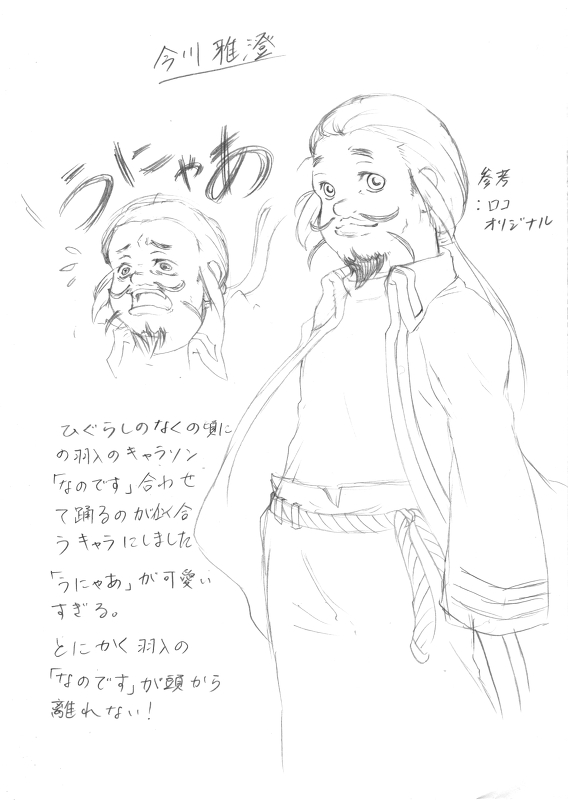 今川 雅澄
うにゃあ
参考
:ロコ
オリジナル
ひぐらしのなくの頃に
の羽入のキャラソン
「なのです」合わせ
て踊るのが似合
うキャラにしました
「うにゃあ」が可愛い
すぎる。
とにかく羽入の
「なのです」が頭から
離れない!